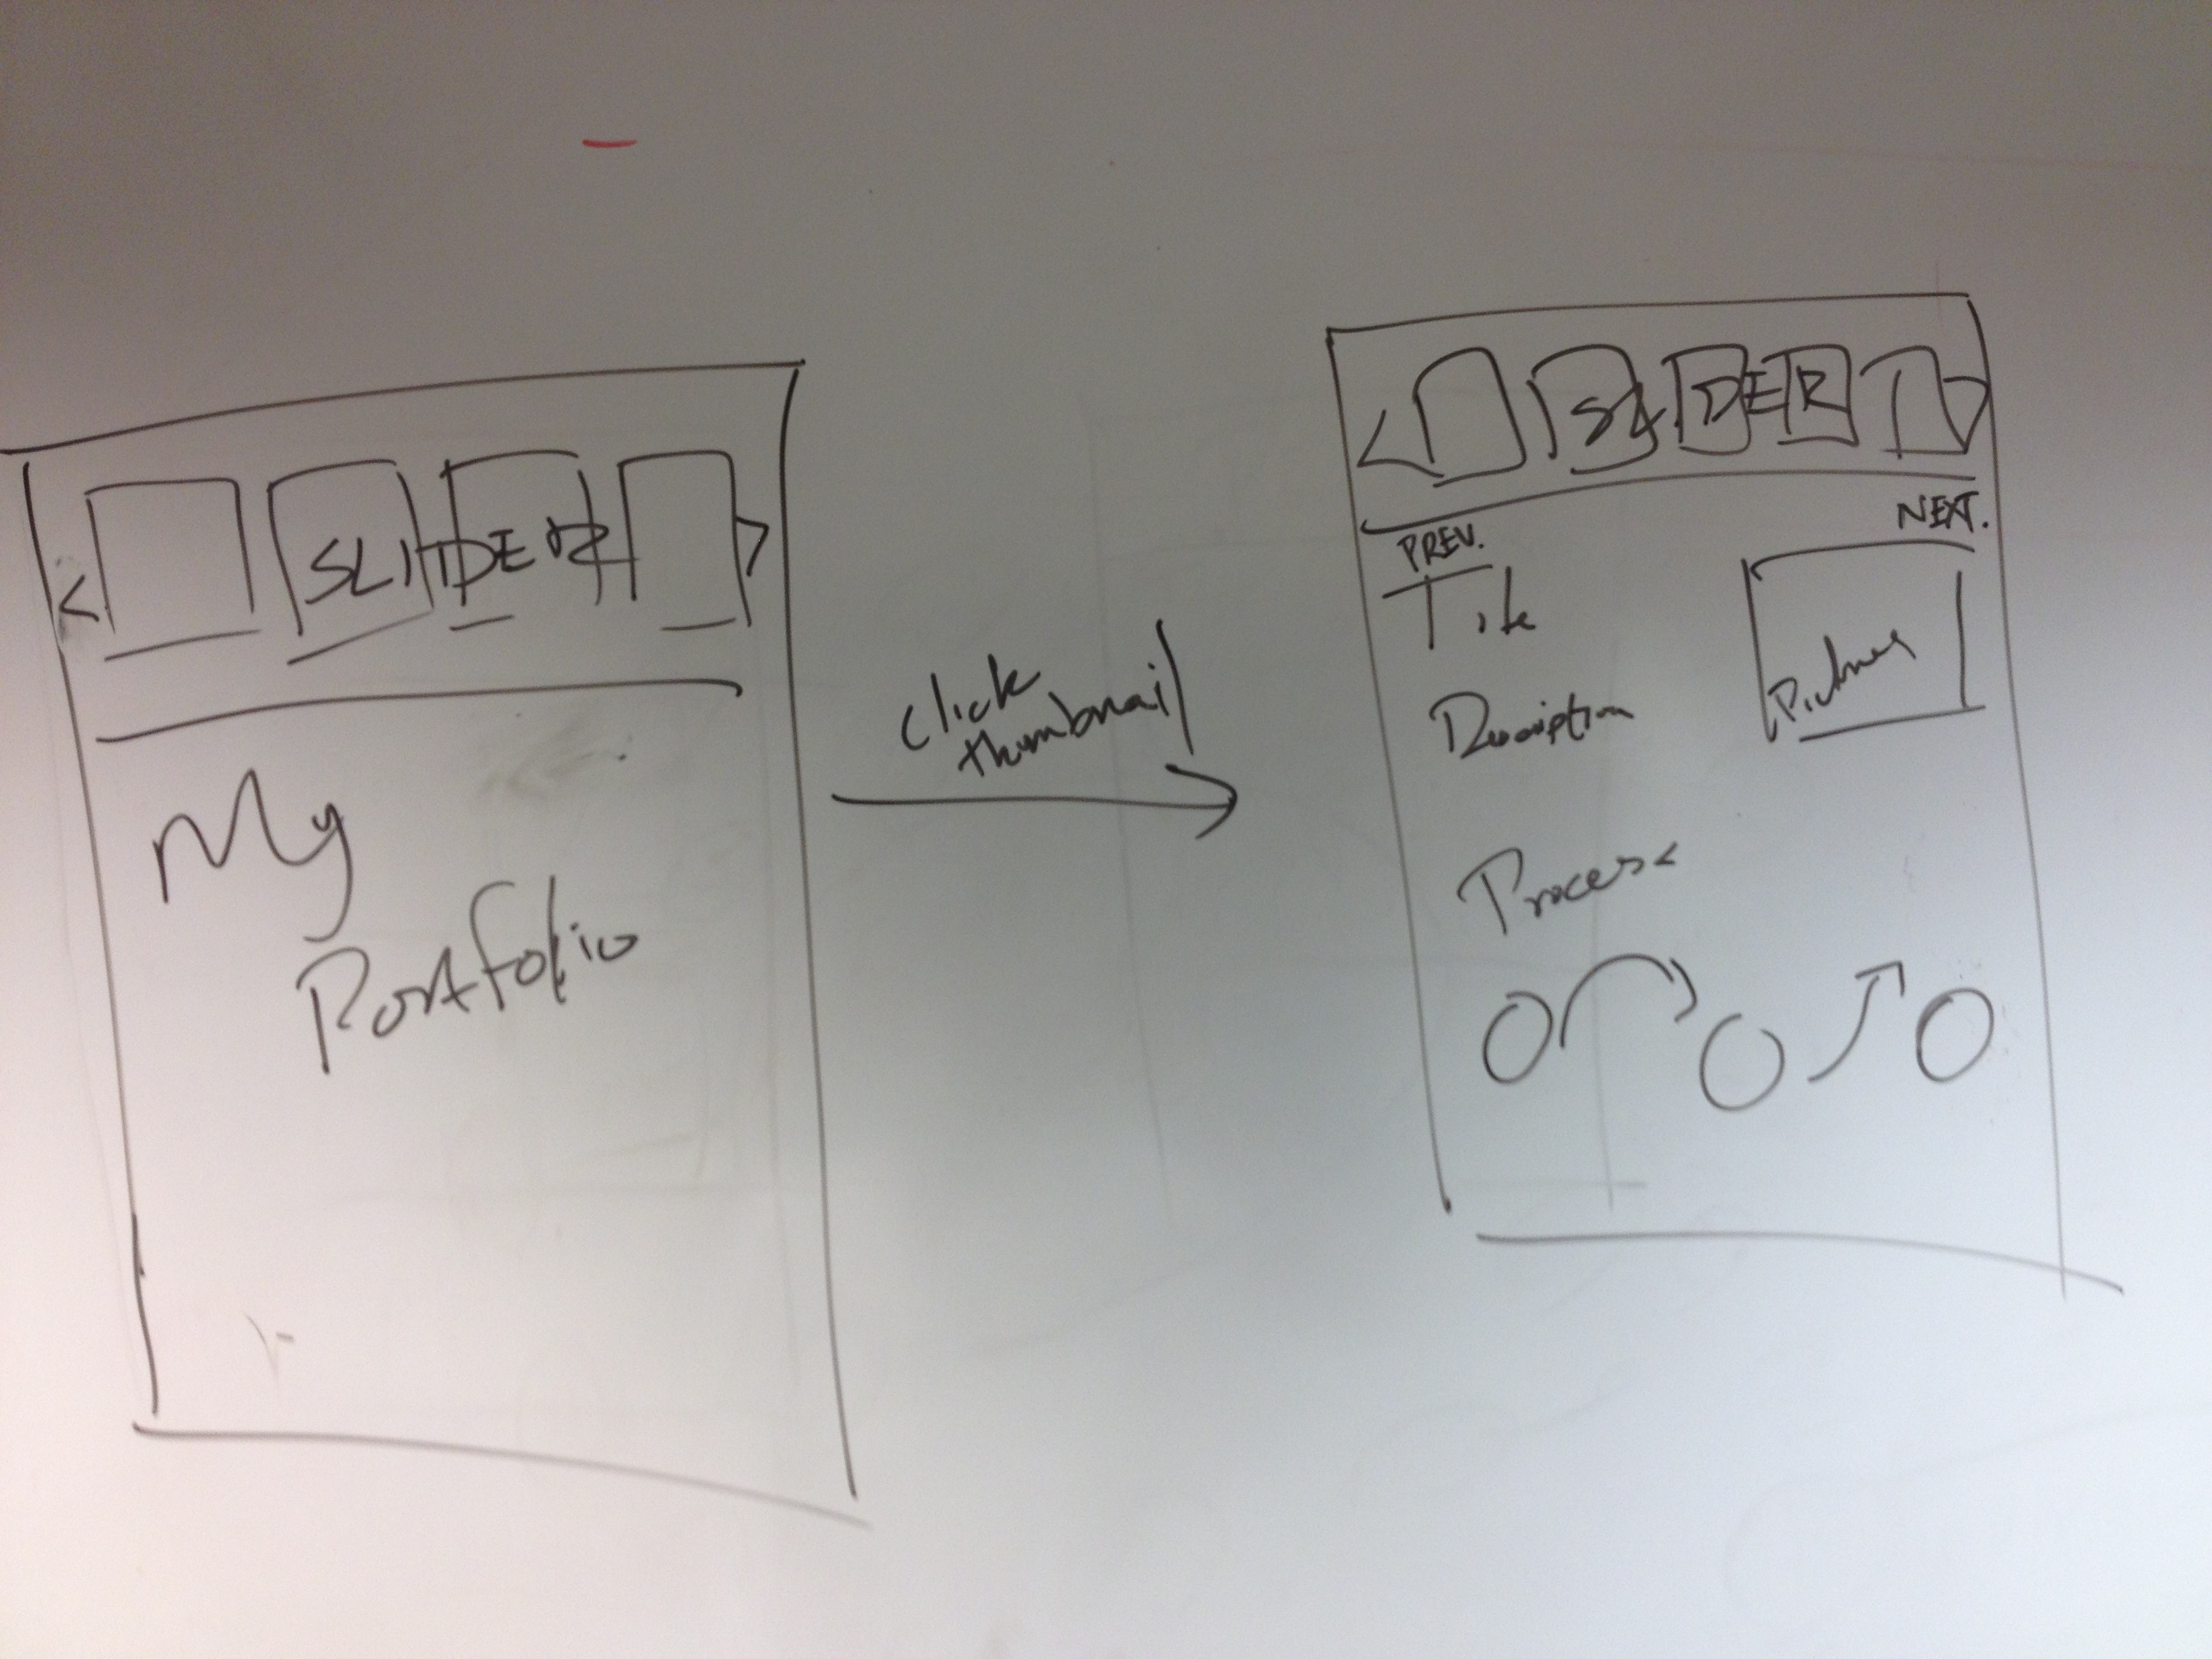 SLIDER
My
Portfolio
click
thumbnail
SLIDER
PREV.
NEXT.
Title
Description
Pictures
Process